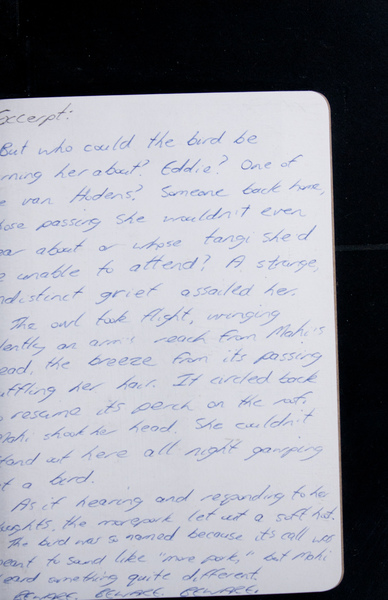 Excerpt:
But who could the bird be
rning her about? Eddie? One of
e van Hudens? Someone back home,
hose passing she wouldn't even
ear about or whose tangi she'd
e unable to attend? A strange,
ndistinct grief assailed her.
The owl took flight, winging
lently an arm's reach from Mahi's
ead, the breeze from its passing
uffling her hair. It circled back
o resume its perch on the roof.
Mahi shook her head. She couldn't
tand out here all night gawping
t a bird.
As if hearing and responding to her
oughts, the morepork let out a soft hoot.
The bird was so named because its call was
meant to sound like "more pork," but Mahi
eard something quite different.
BEWARE. BEWARE. BEWARE.